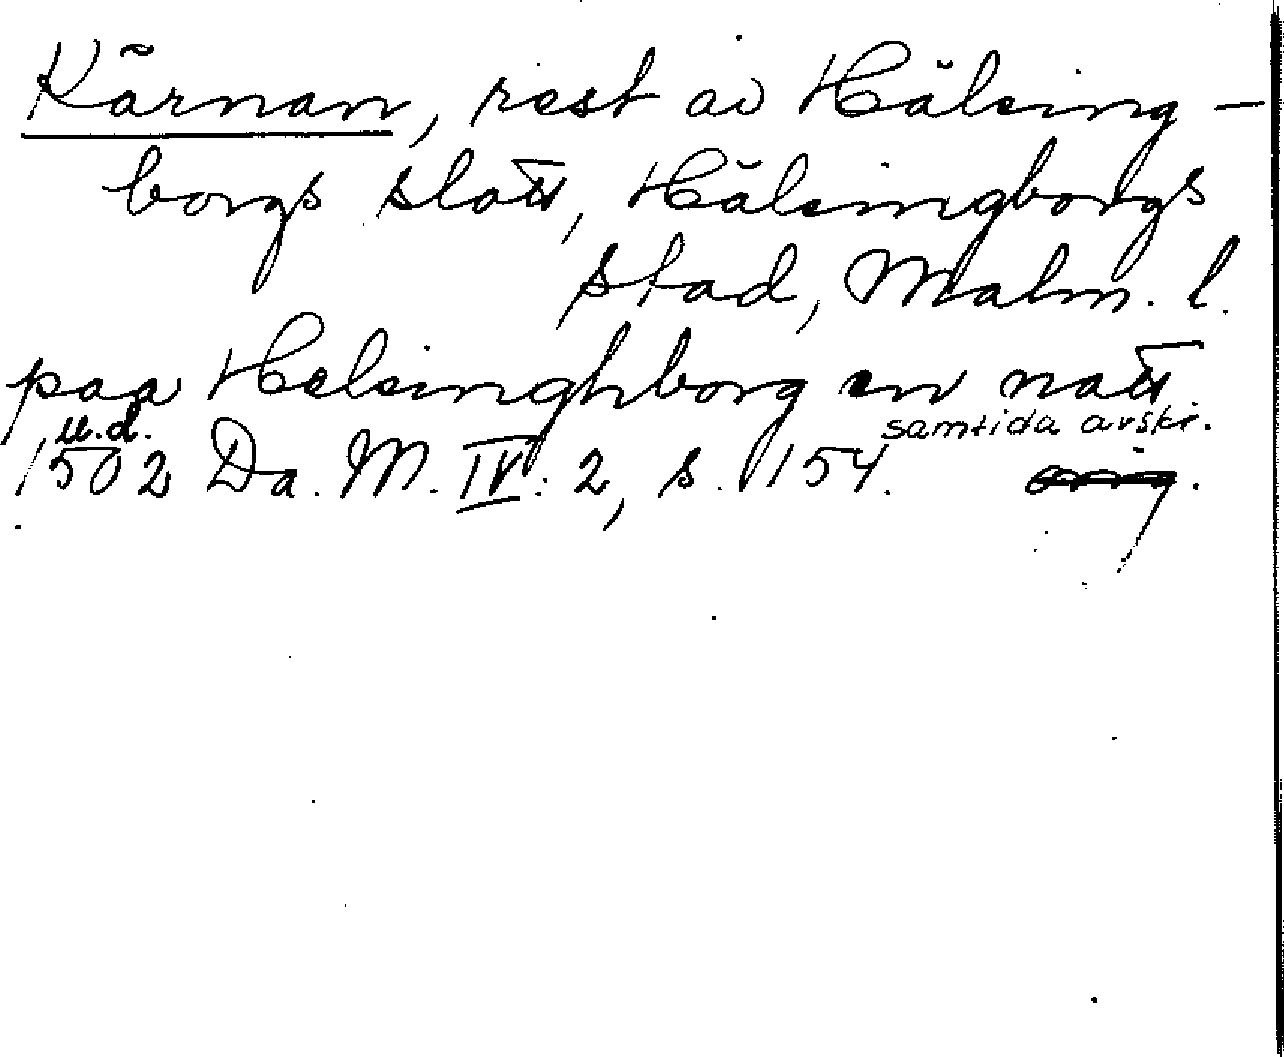 Kärnan, rest av Hälsing-
borgs slott, Hälsingborgs
stad, Malm. l.
paa Helsinghborg en natt
u.d. samtida avskr.
1502 Da. M. IV: 2, s. 154. orig.